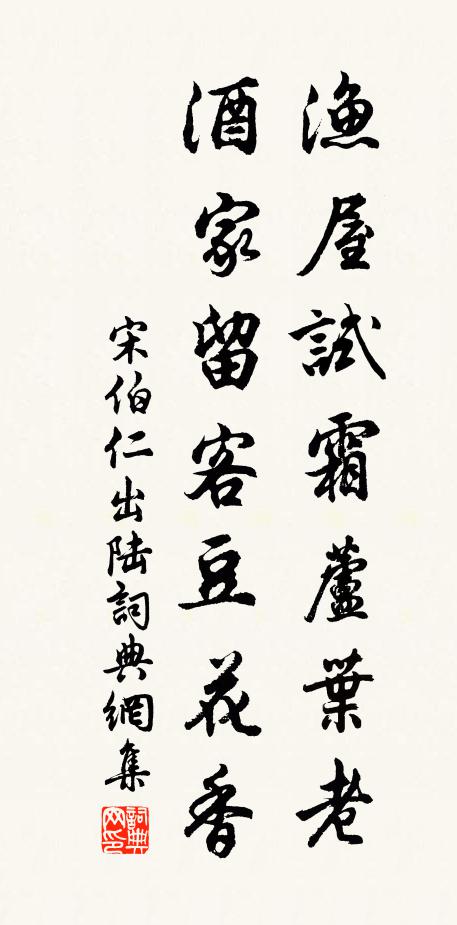 漁屋試霜蘆葉老
酒家留客豆花香
宋伯仁出陆詞典網集
詞典
网印